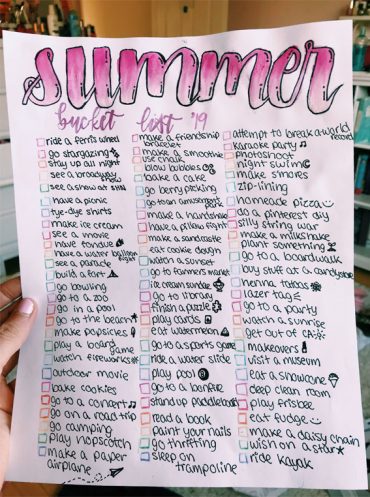 summer
bucket list '19
ride a ferris wheel
go stargazing
stay up all night
see a broadway show
see a show at
have a picnic
tye-dye shirts
make ice cream
see a movie
have fondue
have a water balloon fight
see a parade
build a fort
go bowling
go to a zoo
go in a pool
go to the beach
make popsicles
play a board game
watch fireworks
outdoor movie
bake cookies
go to a concert
go on a road trip
go camping
play hopscotch
make a paper airplane
make a friendship bracelet
make a smoothie
use chalk
blow bubbles
bake a cake
go berry picking
go to an amusement park
make a handshake
have a pillow fight
make a sandcastle
eat cookie dough
watch a sunset
go to farmers market
ice cream sundae
go to library
finish a puzzle
play cards
eat watermelon
go to a sports game
ride a water slide
play pool
go to a bonfire
stand up paddleboard
read a book
paint your nails
go thrifting
sleep on trampoline
attempt to break a world record
karaoke party
photoshoot
night swim
make s'mores
zip-lining
homeade pizza
do a pinterest diy
silly string war
make a milkshake
plant something
go to a boardwalk
buy stuff at a candystore
henna tatoos
lazer tag
go to a party
watch a sunrise
get out of
makeovers
visit a museum
eat a snowcone
deep clean room
play frisbee
eat fudge
make a daisy chain
wish on a star
ride kayak